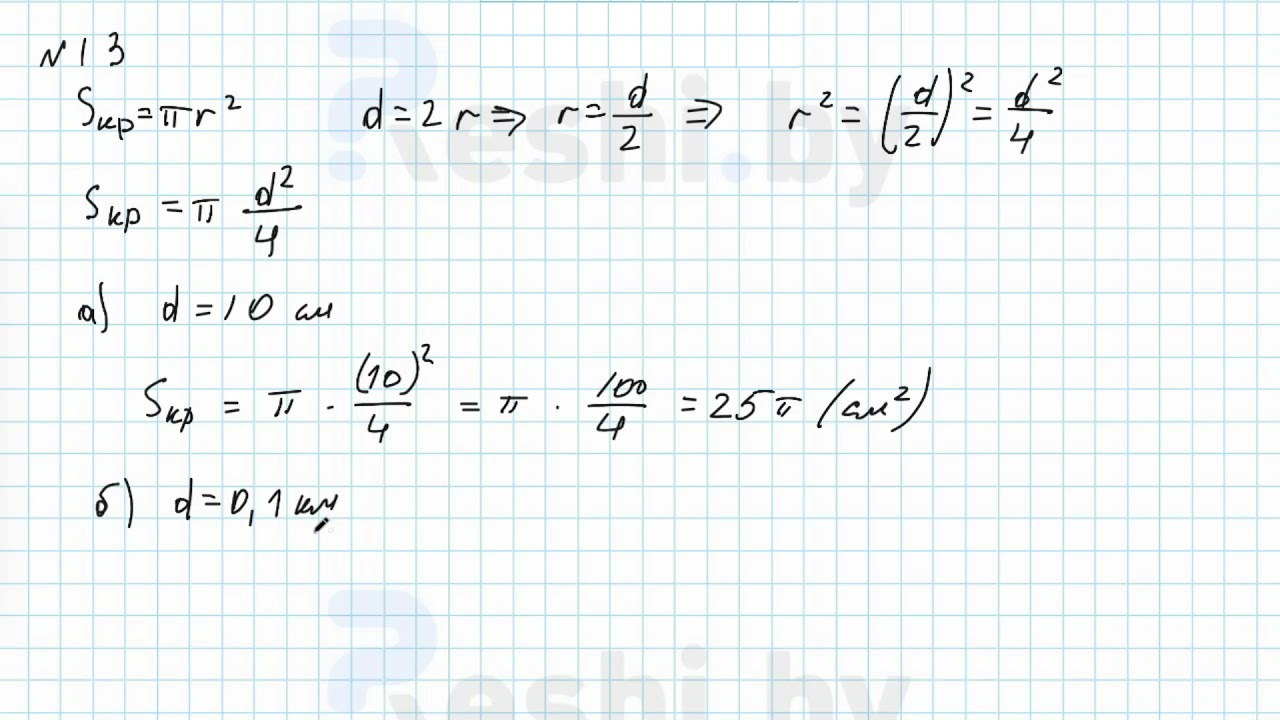 № 13
Sкр = πr² d = 2r ⇒ r = d/2 ⇒ r² = (d/2)² = d²/4
Sкр = π d²/4
а) d = 10 см
Sкр = π · (10)²/4 = π · 100/4 = 25π (см²)
б) d = 0,1 км
Reshi.by
Reshi.by